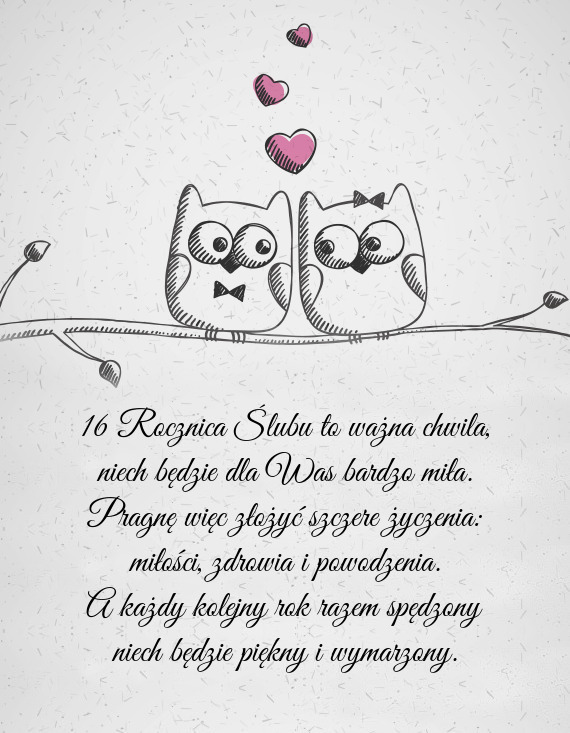 16 Rocznica Ślubu to ważna chwila,
niech będzie dla Was bardzo miła.
Pragnę więc złożyć szczere życzenia:
miłości, zdrowia i powodzenia.
A każdy kolejny rok razem spędzony
niech będzie piękny i wymarzony.